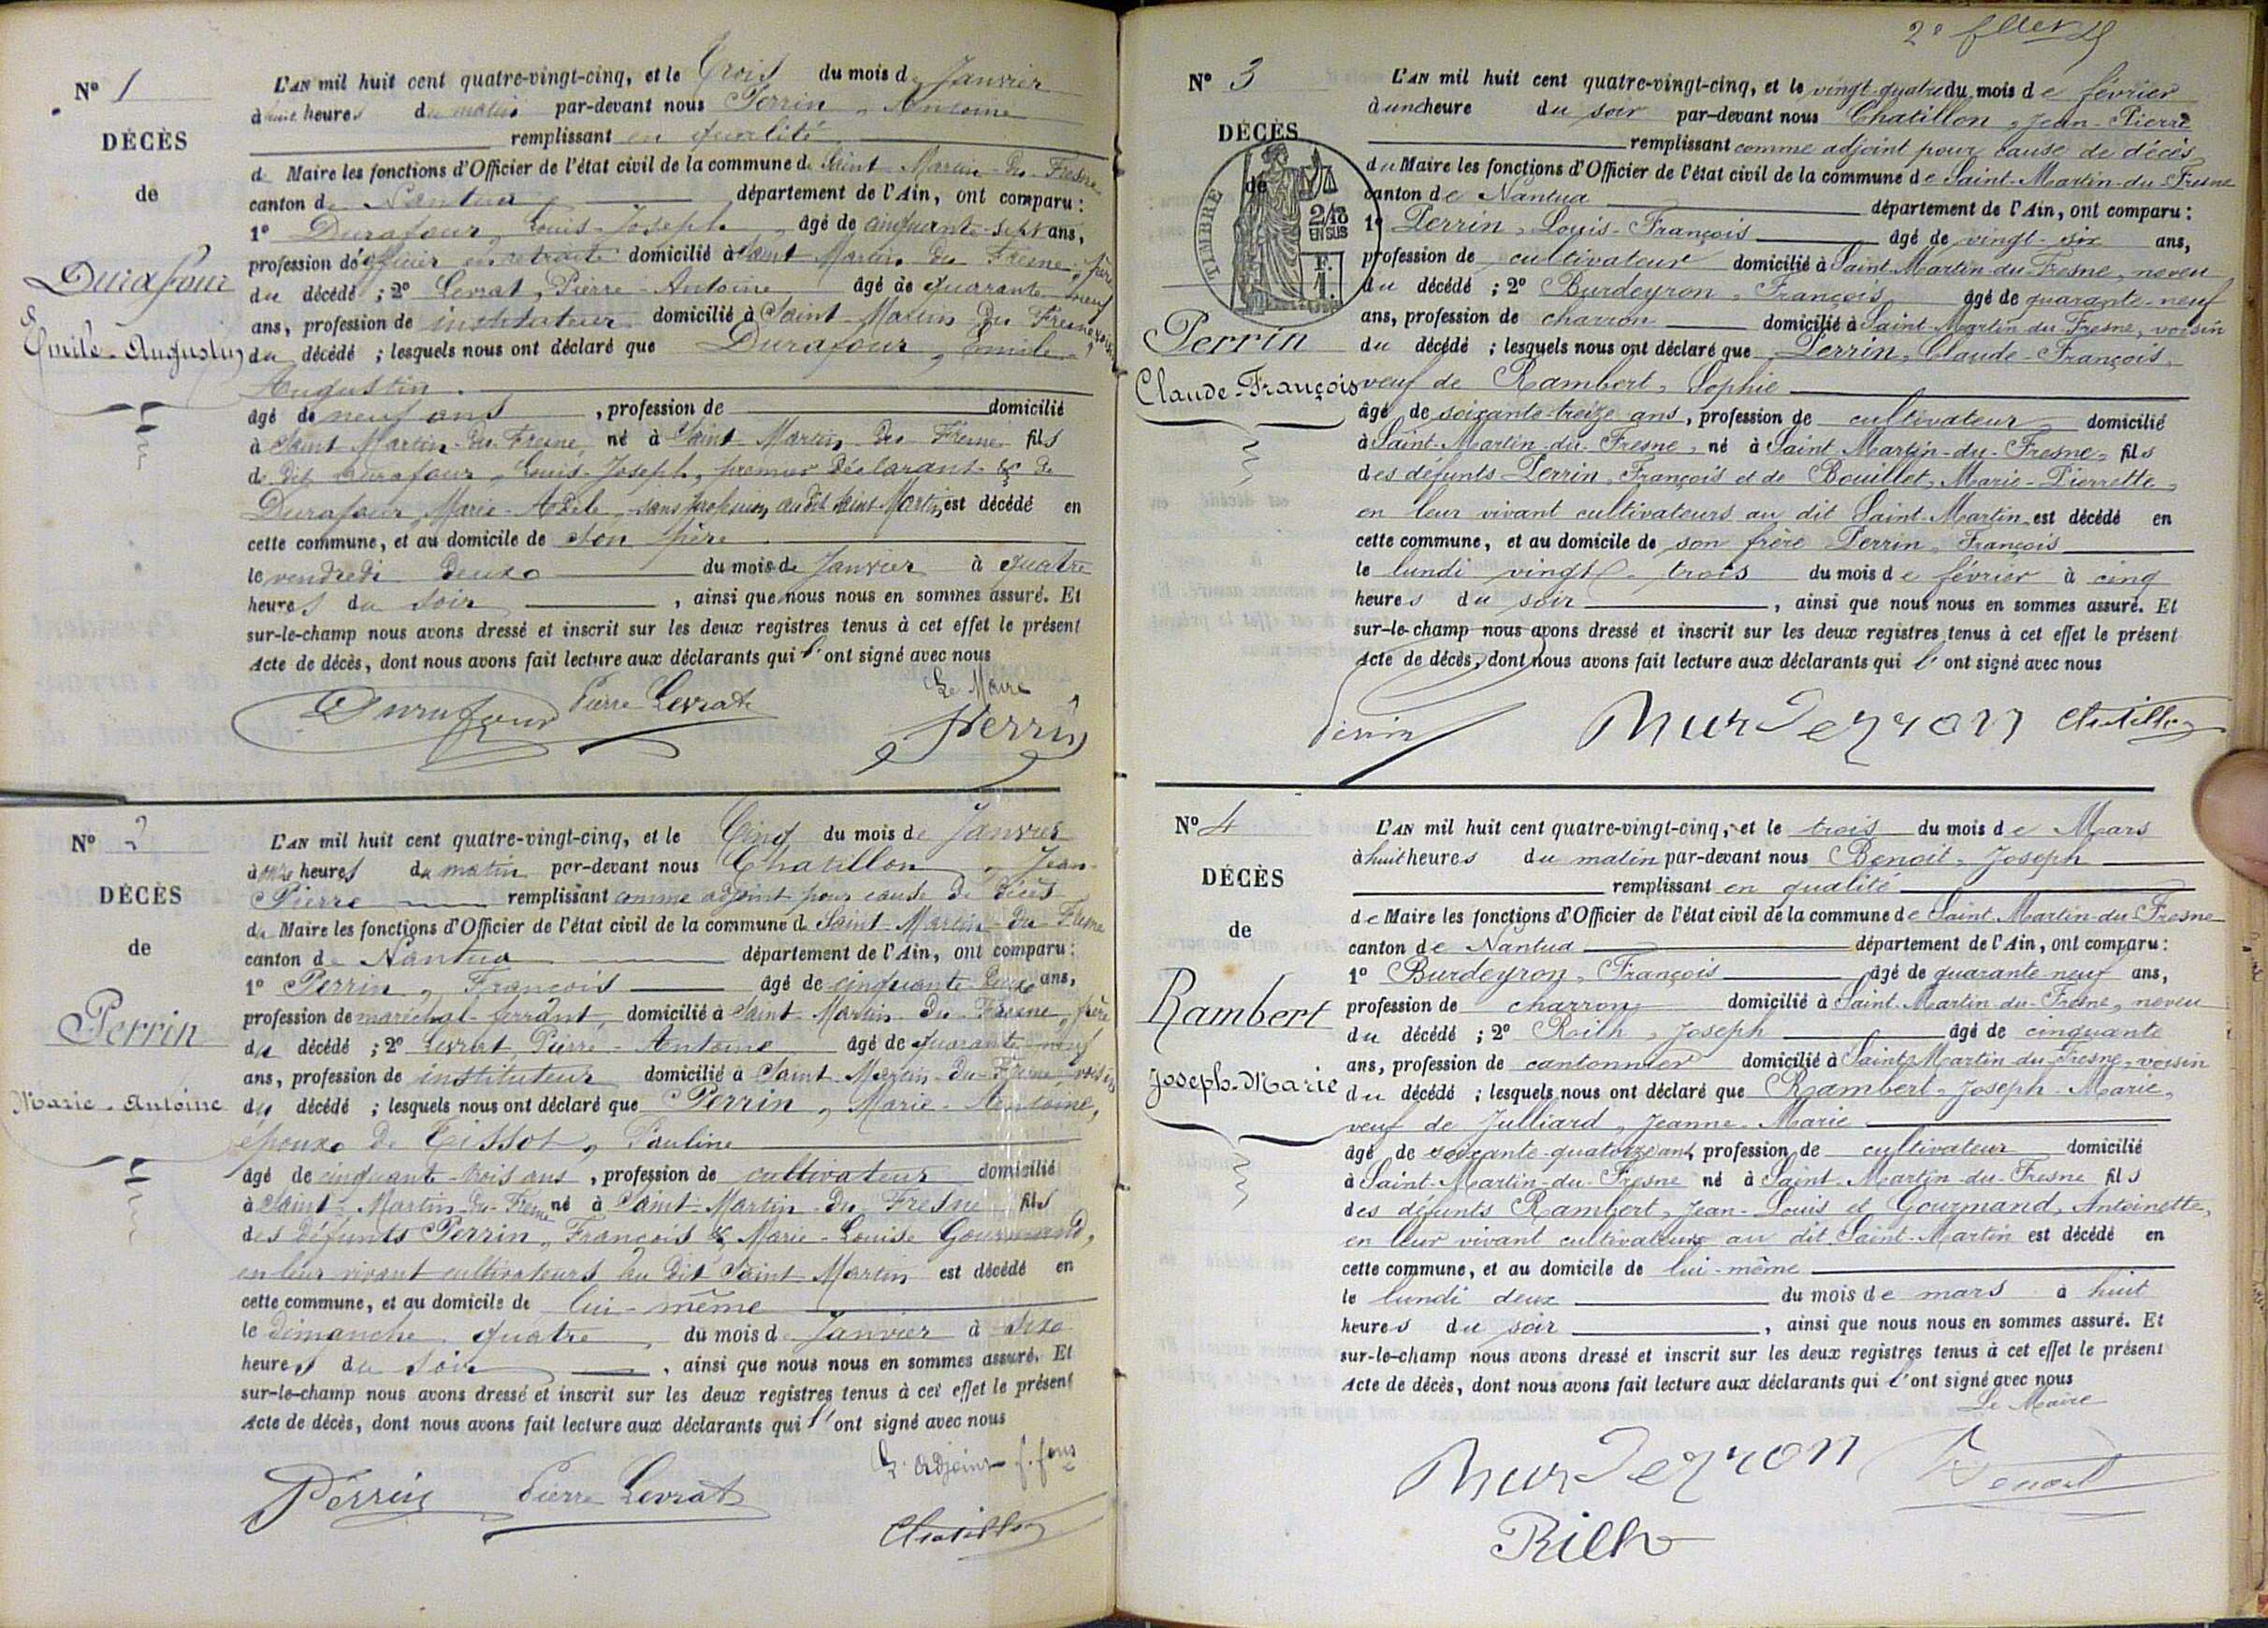 Nº 1
DÉCÈS
de
Durafour
Emile-Augustin
L'AN mil huit cent quatre-vingt-cinq, et le Trois du mois de Janvier
à huit heures du matin par-devant nous Perrin, Antoine
remplissant en qualité
de Maire les fonctions d'Officier de l'état civil de la commune de Saint-Martin-du-Fresne
canton de Nantua département de l'Ain, ont comparu :
1º Durafour, Louis-Joseph, âgé de cinquante-sept ans,
profession de officier en retraite domicilié à Saint-Martin-du-Fresne, père
du décédé ; 2º Levrat, Pierre-Antoine âgé de quarante-neuf
ans, profession de instituteur domicilié à Saint-Martin-du-Fresne, voisin
du décédé ; lesquels nous ont déclaré que Durafour, Emile-
Augustin.
âgé de neuf ans, profession de domicilié
à Saint-Martin-du-Fresne, né à Saint-Martin-du-Fresne fils
de dit Durafour, Louis-Joseph, premier déclarant & de
Durafour, Marie-Adèle, sans profession, au dit Saint-Martin, est décédé en
cette commune, et au domicile de son père.
le vendredi deux du mois de Janvier à quatre
heures du soir, ainsi que nous nous en sommes assuré. Et
sur-le-champ nous avons dressé et inscrit sur les deux registres tenus à cet effet le présent
Acte de décès, dont nous avons fait lecture aux déclarants qui l'ont signé avec nous
Le Maire
Durafour Pierre Levrat Perrin
Nº 2
DÉCÈS
de
Perrin
Marie-Antoine
L'AN mil huit cent quatre-vingt-cinq, et le Cinq du mois de Janvier
à heures du matin par-devant nous Chatillon, Jean-
Pierre remplissant comme adjoint pour cause de décès
du Maire les fonctions d'Officier de l'état civil de la commune de Saint-Martin-du-Fresne
canton de Nantua département de l'Ain, ont comparu :
1º Perrin, François âgé de cinquante-deux ans,
profession de maréchal-ferrant, domicilié à Saint-Martin-du-Fresne, frère
du décédé ; 2º Levrat, Pierre-Antoine âgé de quarante-neuf
ans, profession de instituteur domicilié à Saint-Martin-du-Fresne, voisin
du décédé ; lesquels nous ont déclaré que Perrin, Marie-Antoine,
époux de Tissot, Pauline
âgé de cinquante-trois ans, profession de cultivateur domicilié
à Saint-Martin-du-Fresne né à Saint-Martin-du-Fresne fils
des défunts Perrin, François & Marie-Louise Gourmand,
en leur vivant cultivateurs au dit Saint-Martin est décédé en
cette commune, et au domicile de lui-même
le dimanche quatre du mois de Janvier à six
heures du soir, ainsi que nous nous en sommes assuré. Et
sur-le-champ nous avons dressé et inscrit sur les deux registres tenus à cet effet le présent
Acte de décès, dont nous avons fait lecture aux déclarants qui l'ont signé avec nous
L'adjoint f. fons
Perrin Pierre Levrat
Chatillon
Nº 3
DÉCÈS
de
TIMBRE
2/10
EN SUS
Perrin
Claude-François
L'AN mil huit cent quatre-vingt-cinq, et le vingt-quatre du mois de février
à une heure du soir par-devant nous Chatillon, Jean-Pierre
remplissant comme adjoint pour cause de décès
du Maire les fonctions d'Officier de l'état civil de la commune de Saint-Martin-du-Fresne
canton de Nantua département de l'Ain, ont comparu :
1º Perrin, Louis-François âgé de vingt-six ans,
profession de cultivateur domicilié à Saint-Martin-du-Fresne, neveu
du décédé ; 2º Burdeyron, François âgé de quarante-neuf
ans, profession de charron domicilié à Saint-Martin-du-Fresne, voisin
du décédé ; lesquels nous ont déclaré que Perrin, Claude-François,
veuf de Rambert, Sophie
âgé de soixante-treize ans, profession de cultivateur domicilié
à Saint-Martin-du-Fresne, né à Saint-Martin-du-Fresne, fils
des défunts Perrin, François et de Bouillet, Marie-Pierrette,
en leur vivant cultivateurs au dit Saint-Martin est décédé en
cette commune, et au domicile de son frère Perrin, François
le lundi vingt-trois du mois de février à cinq
heures du soir, ainsi que nous nous en sommes assuré. Et
sur-le-champ nous avons dressé et inscrit sur les deux registres tenus à cet effet le présent
Acte de décès, dont nous avons fait lecture aux déclarants qui l'ont signé avec nous
Perrin Burdeyron Chatillon
Nº 4
DÉCÈS
de
Rambert
Joseph-Marie
L'AN mil huit cent quatre-vingt-cinq, et le trois du mois de Mars
à huit heures du matin par-devant nous Benoit, Joseph
remplissant en qualité
de Maire les fonctions d'Officier de l'état civil de la commune de Saint-Martin-du-Fresne
canton de Nantua département de l'Ain, ont comparu :
1º Burdeyron, François âgé de quarante-neuf ans,
profession de charron domicilié à Saint-Martin-du-Fresne, neveu
du décédé ; 2º Roilh, Joseph âgé de cinquante
ans, profession de cantonnier domicilié à Saint-Martin-du-Fresne, voisin
du décédé ; lesquels nous ont déclaré que Rambert, Joseph-Marie,
veuf de Julliard, Jeanne-Marie
âgé de soixante-quatorze ans, profession de cultivateur domicilié
à Saint-Martin-du-Fresne né à Saint-Martin-du-Fresne fils
des défunts Rambert, Jean-Louis et Gourmand, Antoinette,
en leur vivant cultivateurs au dit Saint-Martin est décédé en
cette commune, et au domicile de lui-même
le lundi deux du mois de mars à huit
heures du soir, ainsi que nous nous en sommes assuré. Et
sur-le-champ nous avons dressé et inscrit sur les deux registres tenus à cet effet le présent
Acte de décès, dont nous avons fait lecture aux déclarants qui l'ont signé avec nous
Le Maire
Burdeyron Benoit
Rilh